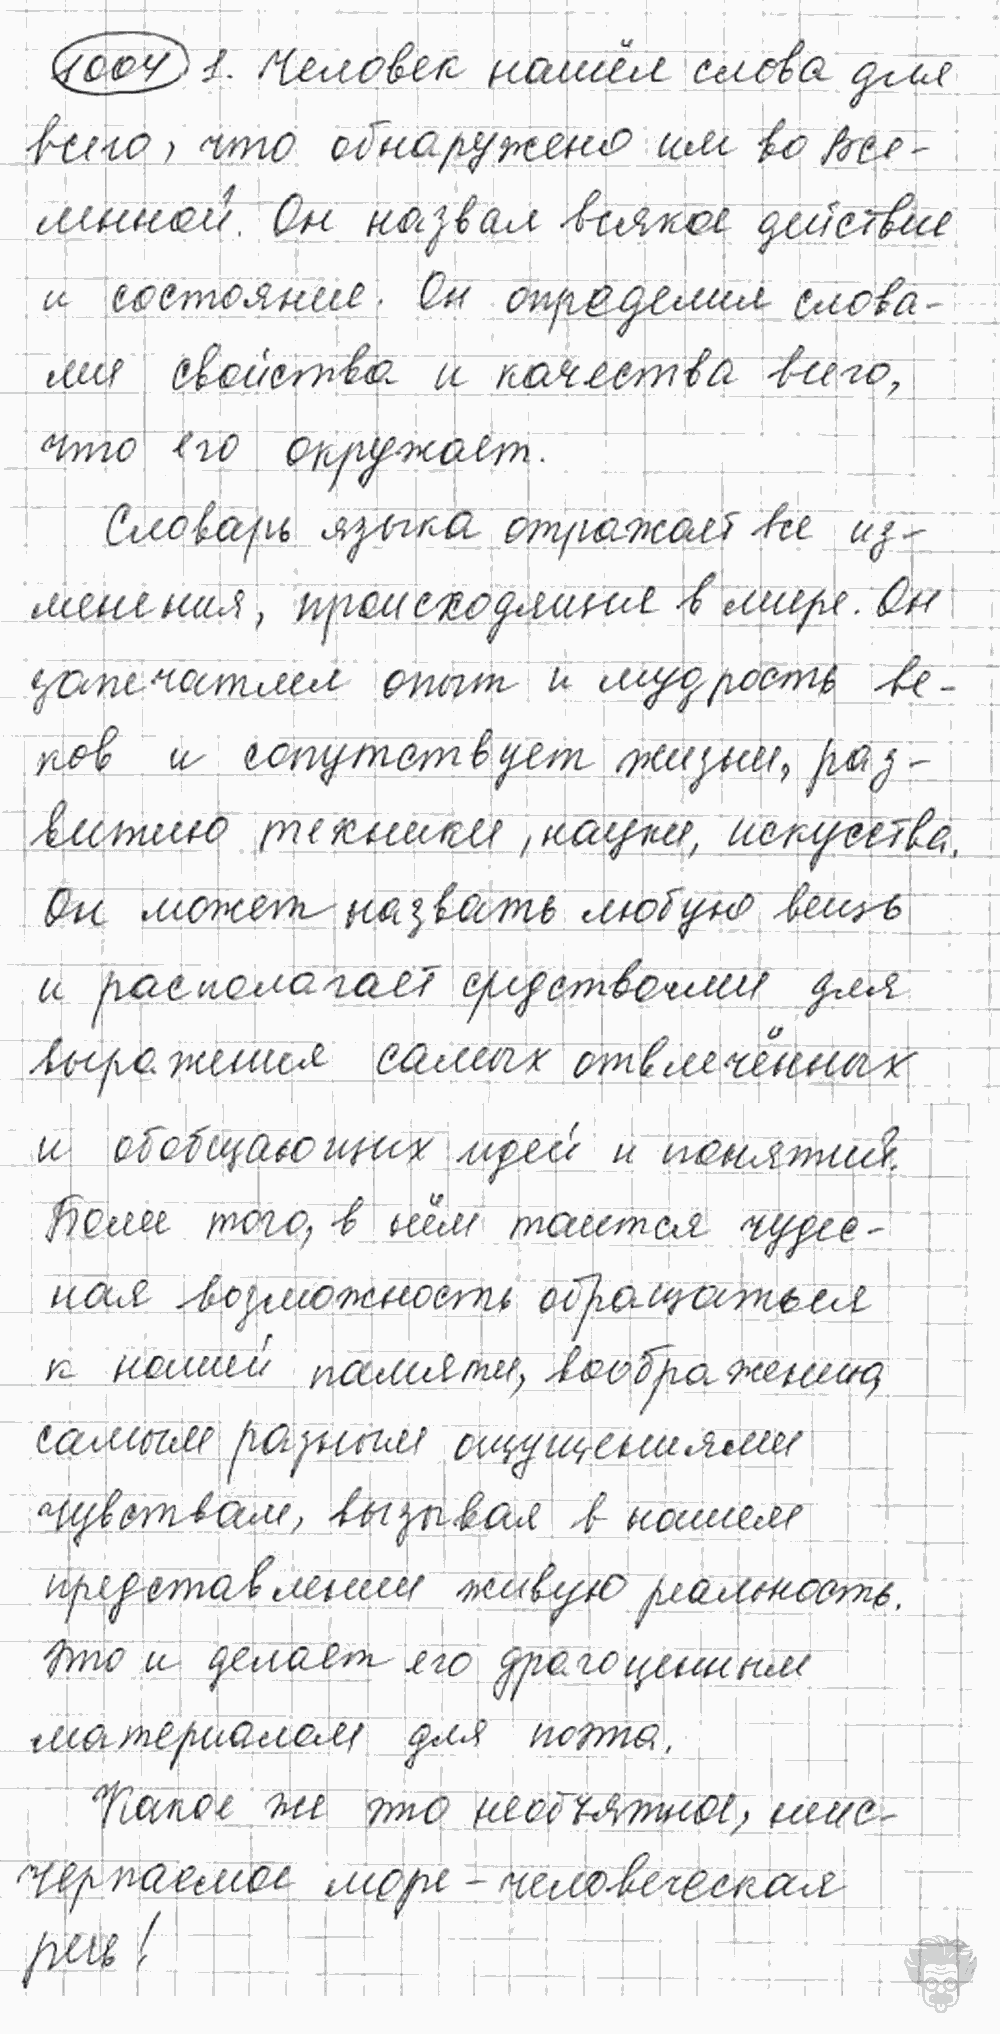 1004 1. Человек нашёл слова для
всего, что обнаружено им во Все-
ленной. Он назвал всякое действие
и состояние. Он определил слова-
ми свойства и качества всего,
что его окружает.
Словарь языка отражает все из-
менения, происходящие в мире. Он
запечатлел опыт и мудрость ве-
ков и сопутствует жизни, раз-
витию техники, науки, искусства.
Он может назвать любую вещь
и располагает средствами для
выражения самых отвлечённых
и обобщающих идей и понятий.
Более того, в нём таится чудес-
ная возможность обращаться
к нашей памяти, воображению,
самым разным ощущениями
чувствам, вызывая в нашем
представлении живую реальность.
Это и делает его драгоценным
материалом для поэта.
Какое же это необъятное, неис-
черпаемое море - человеческая
речь!